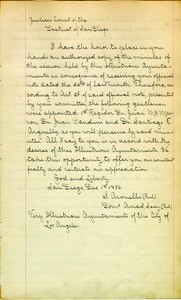 Justices Court of the
District of San Diego.
I have the honor to place in your
hands an authorized copy of the minutes of
the session held by this Illustrious Ayunta-
mento in consequence of receiving your official
note dated the 20th of last month. Therefore, ac-
cording to Art 2d of said official note, presented
by your committee, the following gentlemen
were appointed: 1st Regidor Dn. Juan Ma
Dn. Juan Bandini and Dn. Santiago E.
Arguello as you will perceive by said min-
utes. All I say to you is in accord with the
desires of this Illustrious Ayuntamento. I
take this opportunity to offer you my constant
fealty and reiterate my appreciation
God and Liberty.
San Diego, Dec. 1st 1836.
(Rub)
(Rub)
Very Illustrious Ayuntamento of the City of
Los Angeles